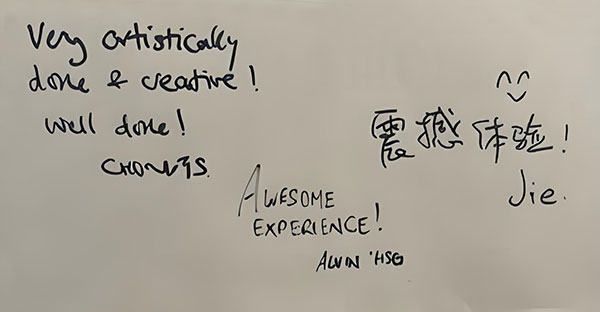 Very artistically
done & creative!
well done!
AWESOME
EXPERIENCE!
ALVIN
震撼体验!
Jie.